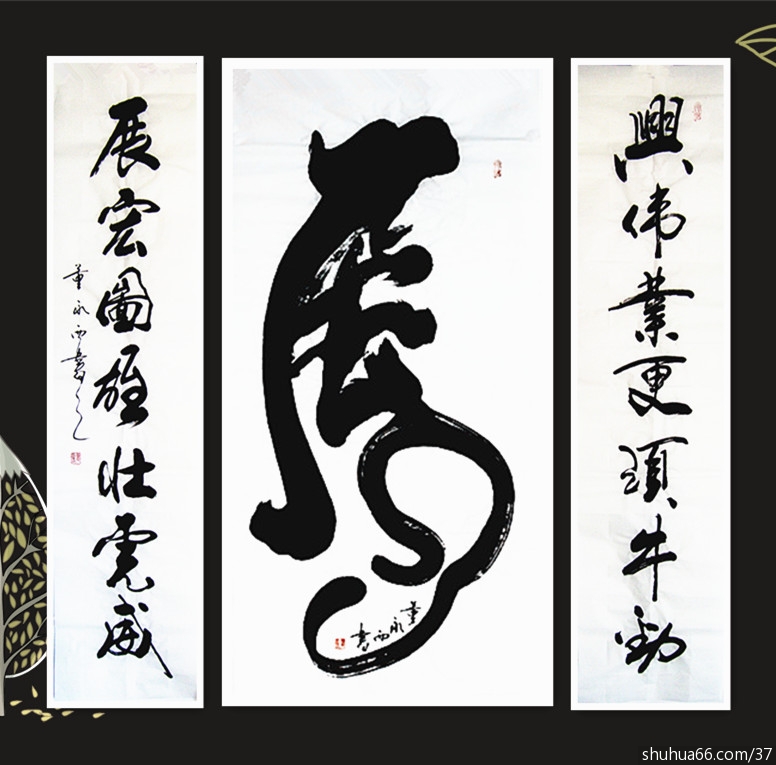 興伟業更須牛勁
虎
董永西書
展宏圖雄壮虎威
董永西書
shuhua66.com/37